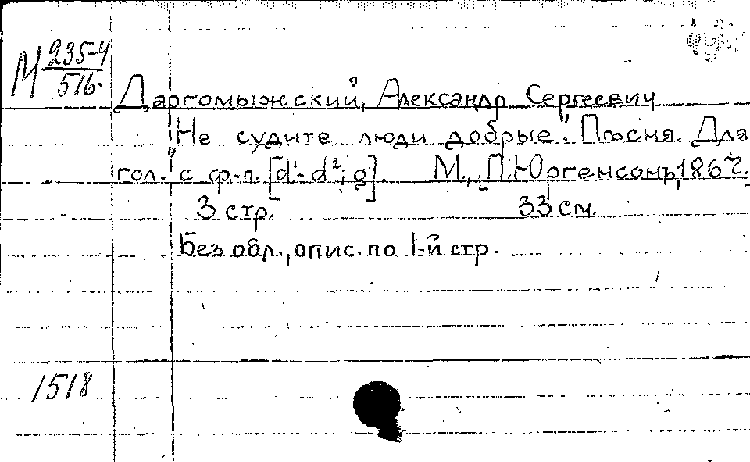 М 235-4
516
Даргомыжский, Александр Сергеевич
"Не судите люди добрые". Пѣсня. Для
гол. с ф.-п. [d¹-d²; g]. М., П. Юргенсонъ,
3 стр. 33 см.
Без обл., опис. по 1-й стр.
1518